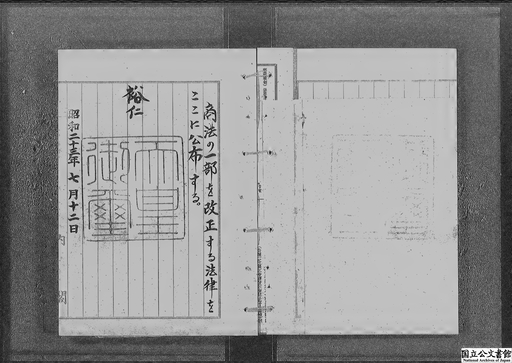 商法の一部を改正する法律を
ここに公布する。
裕仁
天皇
御璽
昭和二十三年七月十二日
内閣
国立公文書館
National Archives of Japan